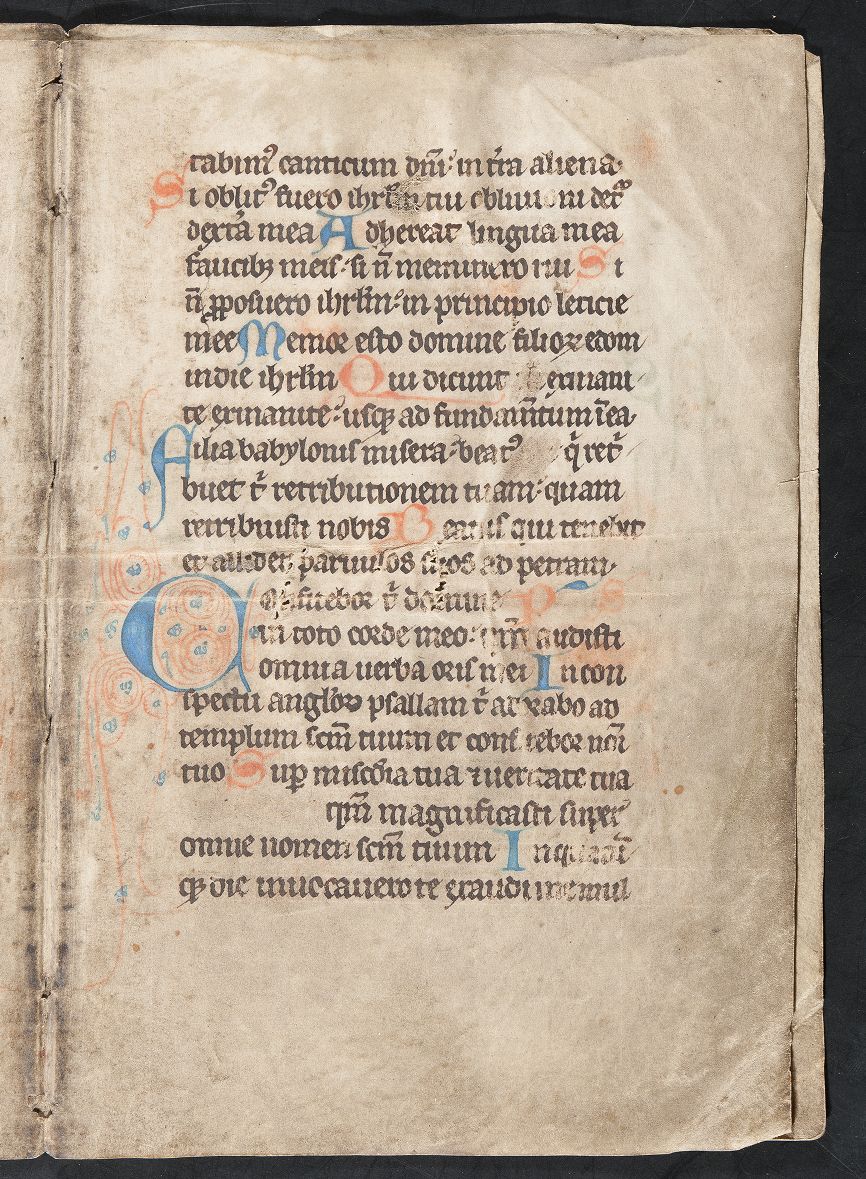 tabim⁹ canticum dn̄i: in t̄ra aliena.
Si oblit⁹ fuero ihrl̄m tui oblivioni det᷑
dext̄a mea Adhereat lingua mea
faucibꝫ meis: si n̄ meminero tui Si
n̄ ꝓposuero ihrl̄m: in principio leticie
mee Memor esto domine filioꝝ edom
in die ihrl̄m Qui dicunt exinani
te exinanite: usqꝫ ad fundam̄tum ī ea
Filia babylonis misera: beat⁹ q̄ ret̄
buet t̄ retributionem tuam: quam
retribuisti nobis Beatus qui tenebit
et allidet parvulos suos ad petram.
Confitebor t̄ domine ps
in toto corde meo: qm̄ audisti
omnia verba oris mei In con
spectu angl̄oꝝ psallam t̄ adorabo ad
templum scm̄ tuum et confitebor noī
tuo Sup̄ mīscd̄ia tua ⁊ veritate tua
qm̄ magnificasti super
omne nomen scm̄ tuum In quacū
qꝫ die invocavero te exaudi me mul